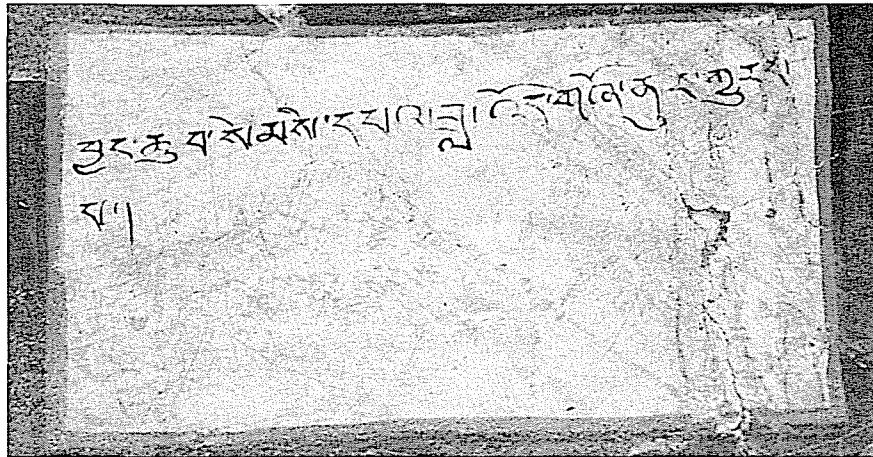 བྱང་ཆུབ་སེམས་དཔའ་ཟླ་འོད་གཞོན་ནུར་གྱུརད་
པ་།